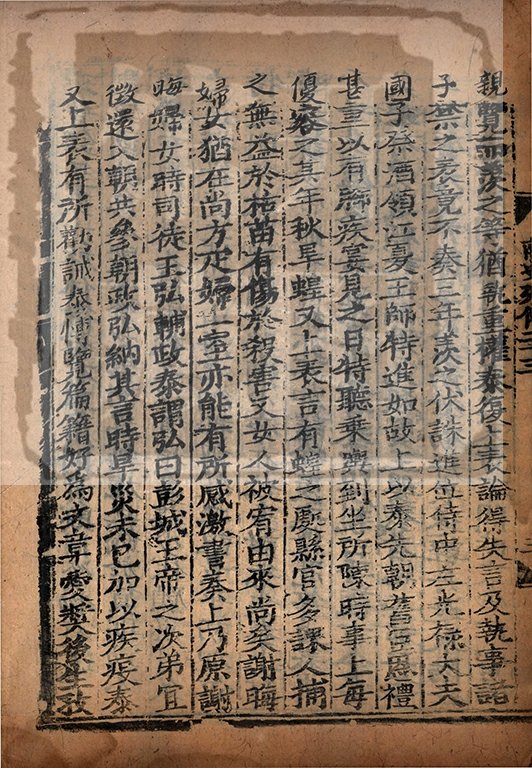 親覽而羨之等猶執重權泰復上表論得失言及執事諸
子禁之表竟不奏三年羨之伏誅進位侍中左光祿大夫
國子祭酒領江夏王師特進如故上以泰先朝舊臣恩禮
甚重以有腳疾宴見之日特聽乘輿到坐所陳時事上每
優容之其年秋旱蝗又上表言有蝗之處縣官多課人捕
之無益於枯苗有傷於殺害又女人被宥由來尚矣謝晦
婦女猶在尚方疋婦一室亦能有所感激書奏上乃原謝
晦婦女時司徒王弘輔政泰謂弘曰彭城王帝之次弟宜
徵還入朝共參朝政弘納其言時旱災未已加以疾疫泰
又上表有所勸誡泰博覽篇籍好為文章愛獎後生孜